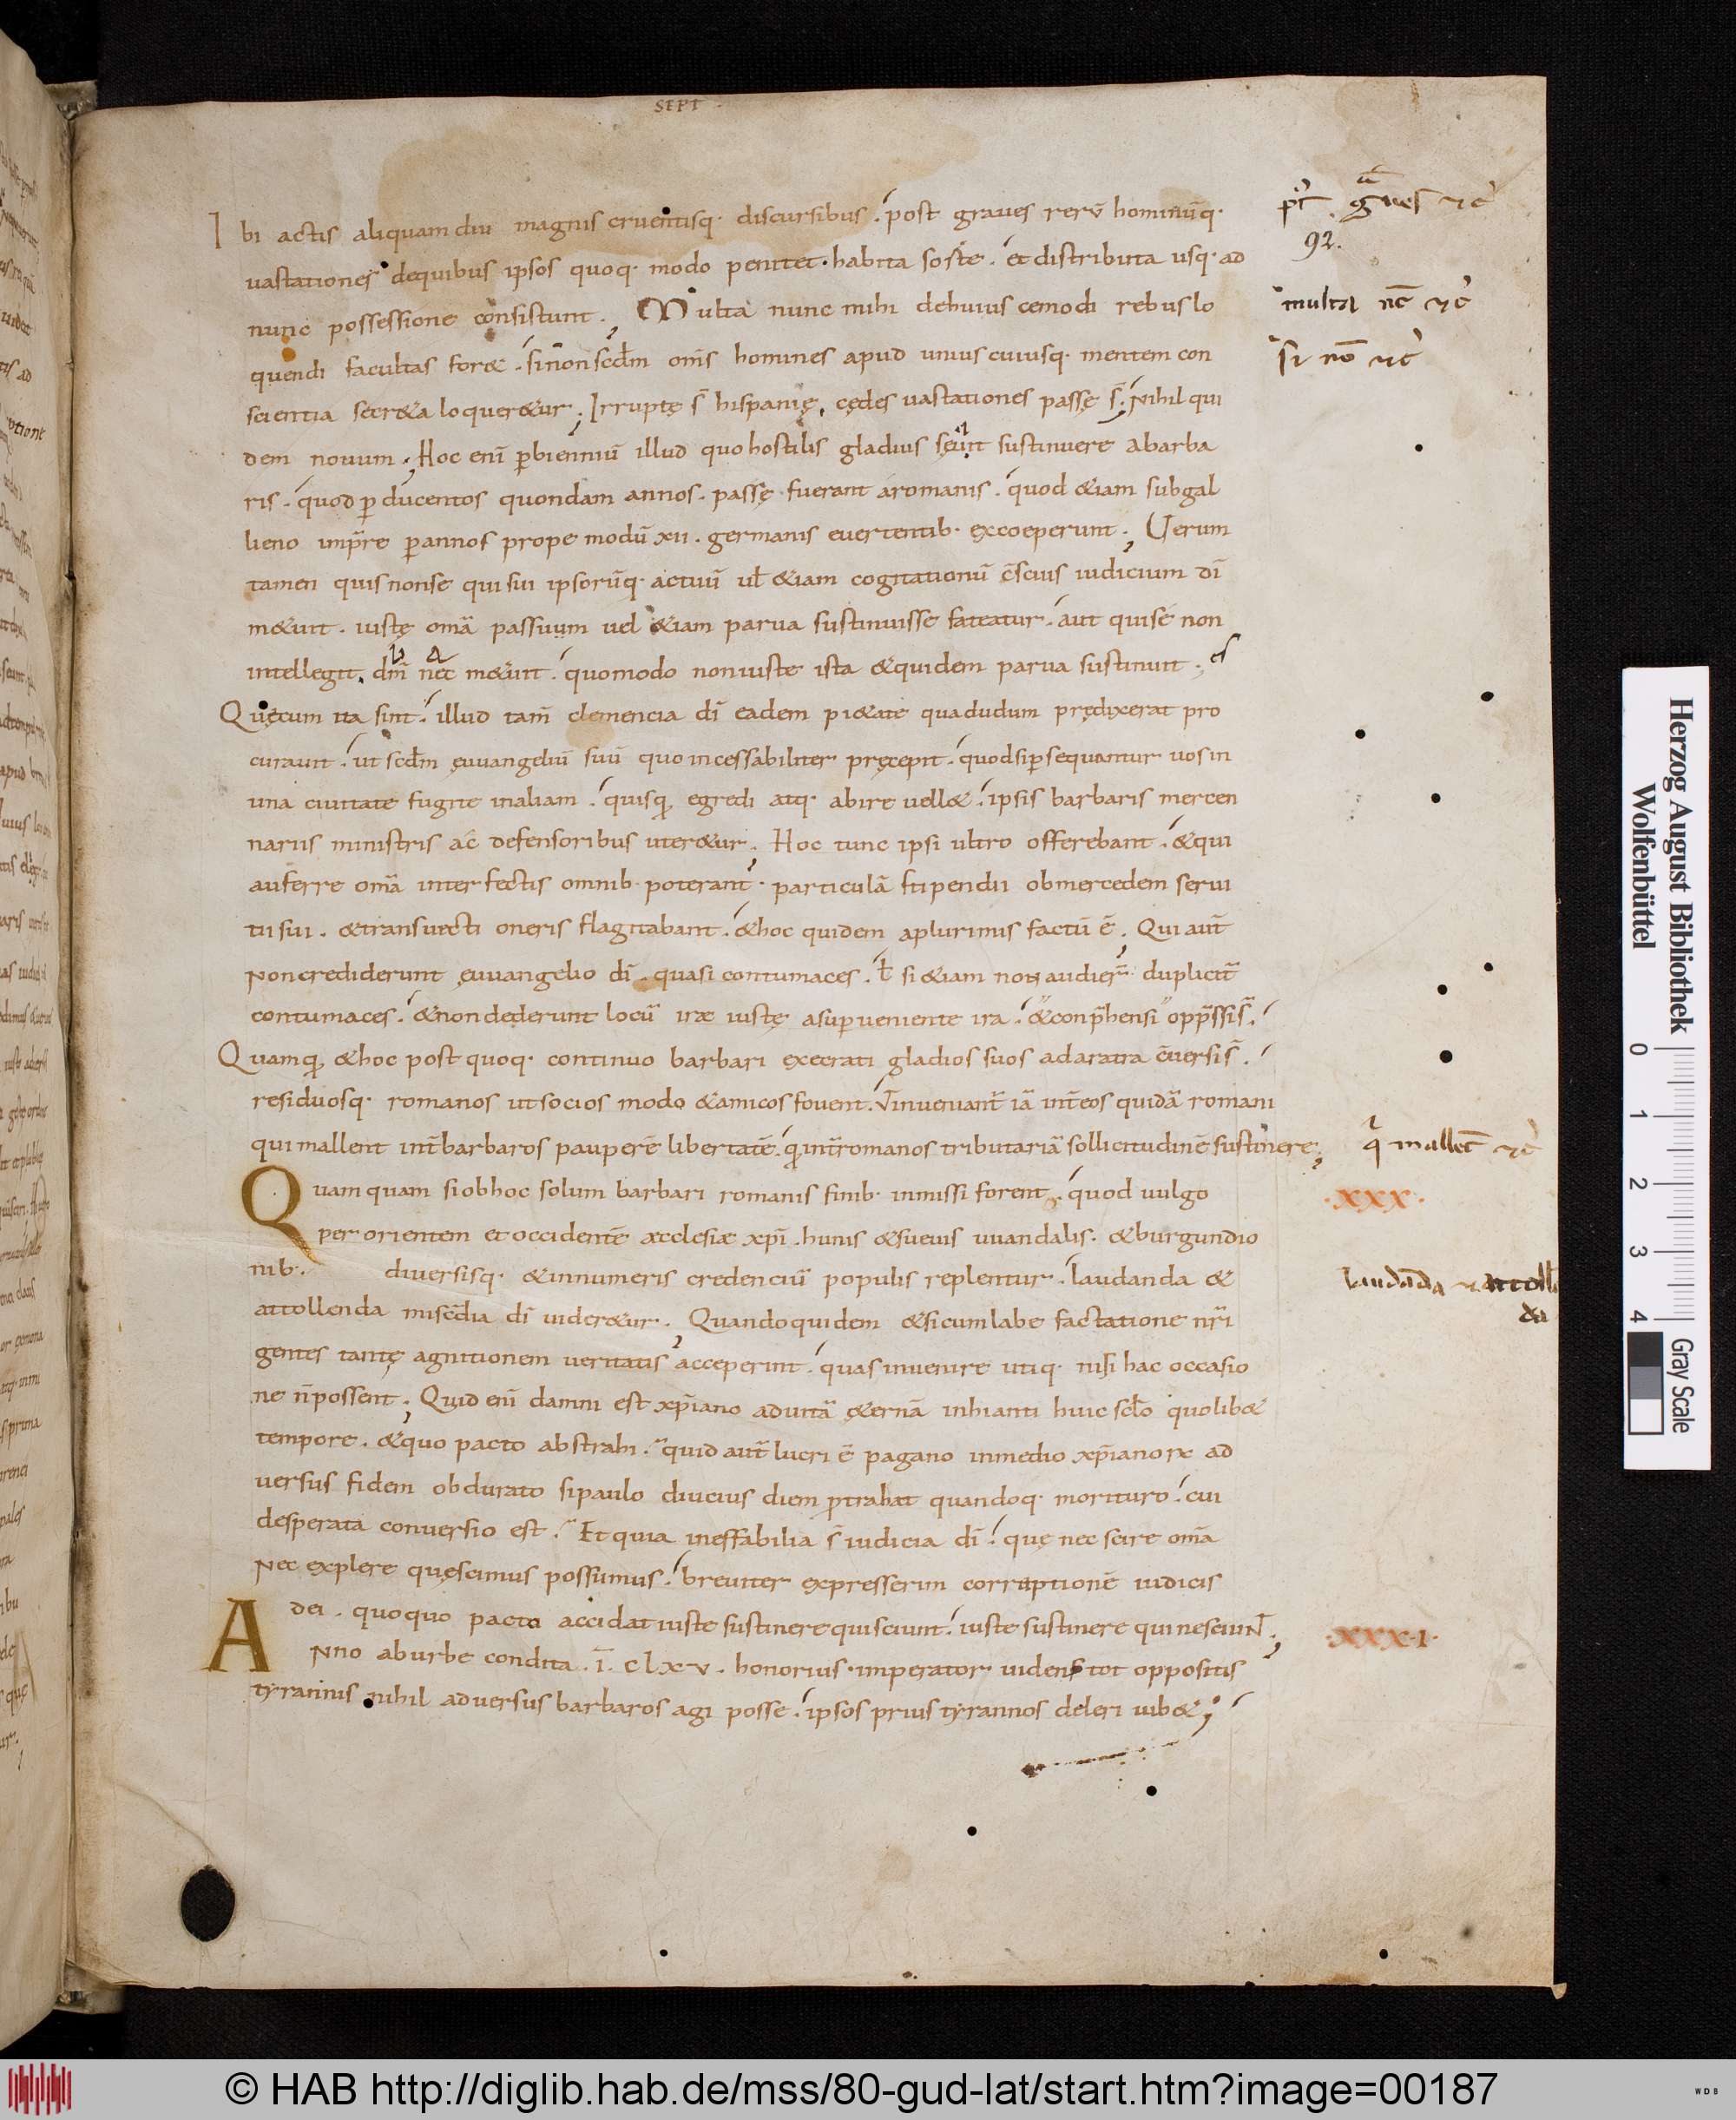 SEPT
Ibi actis aliquamdiu magnis cruentisq· discursibus . post graues rerū hominūq·
uastationes dequibus ipsos quoq· modo penitet · habita sorte . et distributa usq· ad
nunc possessione consistunt ; Multa nunc mihi dehuiuscemodi rebus lo
quendi facultas foret . si non scdm̄ om̄s homines apud uniuscuiusq· mentem con
scientia secreta loqueretur ; Irruptę s̄ hispanię , cędes uastationes passę s̄ ; Nihil qui
dem nouum ; Hoc eni̅ p̱bienniū illud quo hostilis gladius sustinuere abarba
ris . quod p̱ ducentos quondam annos . passę fuerant aromanis . quod &iam subgal
lieno imp̄re p̱annos prope modū xii . germanis euertentib· exceperunt ; Uerum
tamen quis non se qui sui ipsorūq· actuū ul̄ &iam cogitationū c̄scius iudicium dī
m&uit . iustę om̄a passuum uel &iam parua sustinuisse fateatur . aut qui se non
intellegit . dm̄ nec m&uit . quomodo noniuste ista &quidem parua sustinuit ;
Quęcum ita sint . illud tam̄ clemencia dī eadem pi&ate quadudum prędixerat pro
curauit . ut scdm̄ euuangeliū suū quo incessabiliter pręcepit . quodsip̱sequantur uosin
una ciuitate fugite inaliam . quisq egredi atq· abire uell& . ipsis barbaris mercen
nariis ministris ac defensoribus uter&ur ; Hoc tunc ipsi ultro offerebant . &qui
auferre om̄a interfectis omnib· poterant · particulā stipendii obmercedem serui
tii sui . &transuecti oneris flagitabant . &hoc quidem aplurimis factū ē ; Qui aut̄
Noncrediderunt euuangelio dī . quasi contumaces . ł si &iam non audier̄ duplicit̄
contumaces . &non dederunt locū iræ iustę asup̱ueniente ira . &conp̄hensi opp̄ssi s̄ .
Quamq &hoc post quoq· continuo barbari execrati gladios suos adaratra c̄uersi s̄ .
residuosq· romanos utsocios modo &amicos fouent . ut̄ inueniant̄ iā int̄eos quidā romani
qui mallent int̄barbaros pauperē libertatē . q int̄romanos tributariā sollicitudinē sustinere ;
Quamquam siobhoc solum barbari romanis finib· inmissi forent . quod uulgo
per orientem et occidentē æcclesiæ xp̄i . hunis &sueuis uuandalis . &burgundio
nib· . diuersisq· &innumeris credenciū populis replentur . laudanda &
attollenda miscd̄ia dī uider&ur ; Quandoquidem &sicumlabefactatione nr̄i
gentes tantę agnitionem ueritatis acceperint . quas inuenire utiq· nisi hac occasio
ne n̄possent ; Quid eni̅ damni est xp̄iano aduitā &ernā inhianti huic scl̄o quolib&
tempore . &quo pacto abstrahi . quid aut̄ lucri ē pagano inmedio xp̄ianorꝝ ad
uersus fidem obdurato sipaulo diucius diem p̱trahat quandoq· morituro . cui
desperata conuersio est . Et quia ineffabilia s̄ iudicia dī . quę nec scire om̄a
Nec explere quęscimus possumus . breuiter expresserim corruptionē iudicis
dei . quoquo pacto accidat iuste sustinere qui sciunt . iuste sustinere qui nesciunt ;
Anno aburbe condita . ī . clxv . honorius imperator uidens tot oppositis
tyrannis nihil aduersus barbaros agi posse . ipsos prius tyrannos deleri iub& ;
92.
multa nc̄
si nō
q mallet̄
·xxx·
laudāda
·xxx·i·
Herzog August Bibliothek
Wolfenbüttel
0 1 2 3 4
Gray Scale
© HAB http://diglib.hab.de/mss/80-gud-lat/start.htm?image=00187
WDB